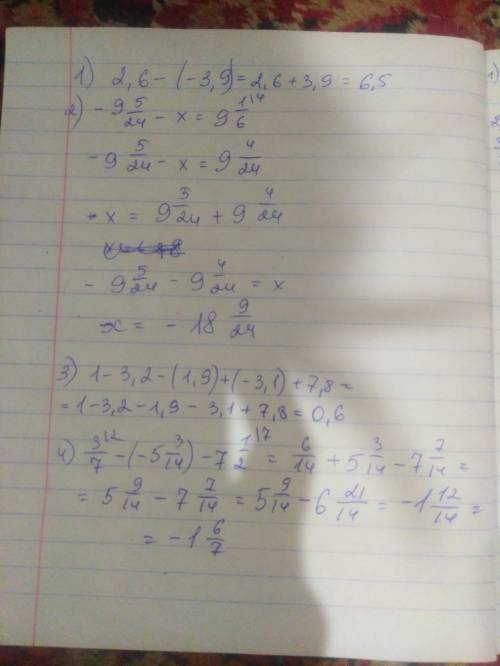 1) 2,6 - (-3,9) = 2,6 + 3,9 = 6,5
2) - 9 5/24 - x = 9 1/6 |4
- 9 5/24 - x = 9 4/24
- x = 9 5/24 + 9 4/24
- 9 5/24 - 9 4/24 = x
x = - 18 9/24
3) 1 - 3,2 - (1,9) + (-3,1) + 7,8 =
= 1 - 3,2 - 1,9 - 3,1 + 7,8 = 0,6
4) 3/7 |2 - (-5 3/14) - 7 1/2 |7 = 6/14 + 5 3/14 - 7 7/14 =
= 5 9/14 - 7 7/14 = 5 9/14 - 6 21/14 = - 1 12/14 =
= - 1 6/7